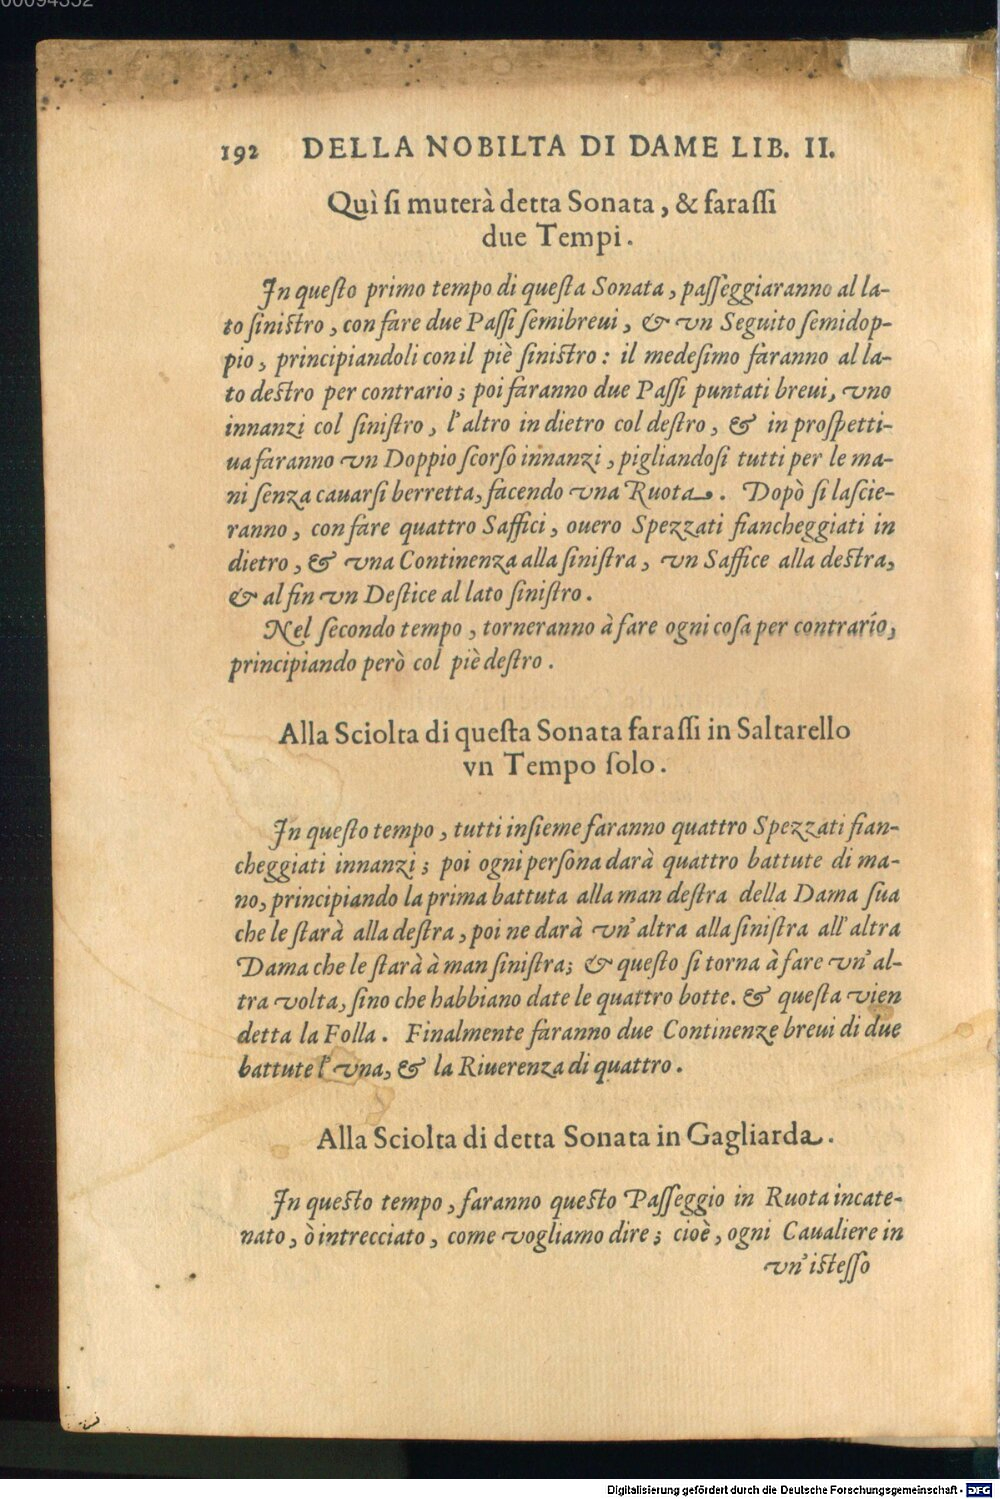 00094352
192 DELLA NOBILTA DI DAME LIB. II.
Quì ſi muterà detta Sonata, & faraſſi
due Tempi.
In queſto primo tempo di queſta Sonata, paſſeggiaranno al la-
to ſiniſtro, con fare due Paſſi ſemibreui, & vn Seguito ſemidop-
pio, principiandoli con il piè ſiniſtro: il medeſimo faranno al la-
to deſtro per contrario; poi faranno due Paſſi puntati breui, vno
innanzi col ſiniſtro, l'altro in dietro col deſtro, & in proſpetti-
ua faranno vn Doppio ſcorſo innanzi, pigliandoſi tutti per le ma-
ni ſenza cauarſi berretta, facendo vna Ruota. Dopò ſi laſcie-
ranno, con fare quattro Saffici, ouero Spezzati fiancheggiati in
dietro, & vna Continenza alla ſiniſtra, vn Saffice alla deſtra,
& al fin vn Deſtice al lato ſiniſtro.
Nel ſecondo tempo, torneranno à fare ogni coſa per contrario,
principiando però col piè deſtro.
Alla Sciolta di queſta Sonata faraſſi in Saltarello
vn Tempo ſolo.
In queſto tempo, tutti inſieme faranno quattro Spezzati fian-
cheggiati innanzi; poi ogni perſona darà quattro battute di ma-
no, principiando la prima battuta alla man deſtra della Dama ſua
che le ſtarà alla deſtra, poi ne darà vn'altra alla ſiniſtra all'altra
Dama che le ſtarà à man ſiniſtra; & queſto ſi torna à fare vn'al-
tra volta, ſino che habbiano date le quattro botte. & queſta vien
detta la Folla. Finalmente faranno due Continenze breui di due
battute l'vna, & la Riuerenza di quattro.
Alla Sciolta di detta Sonata in Gagliarda.
In queſto tempo, faranno queſto Paſſeggio in Ruota incate-
nato, ò intrecciato, come vogliamo dire; cioè, ogni Caualiere in
vn'iſteſſo
Digitalisierung gefördert durch die Deutsche Forschungsgemeinschaft - DFG